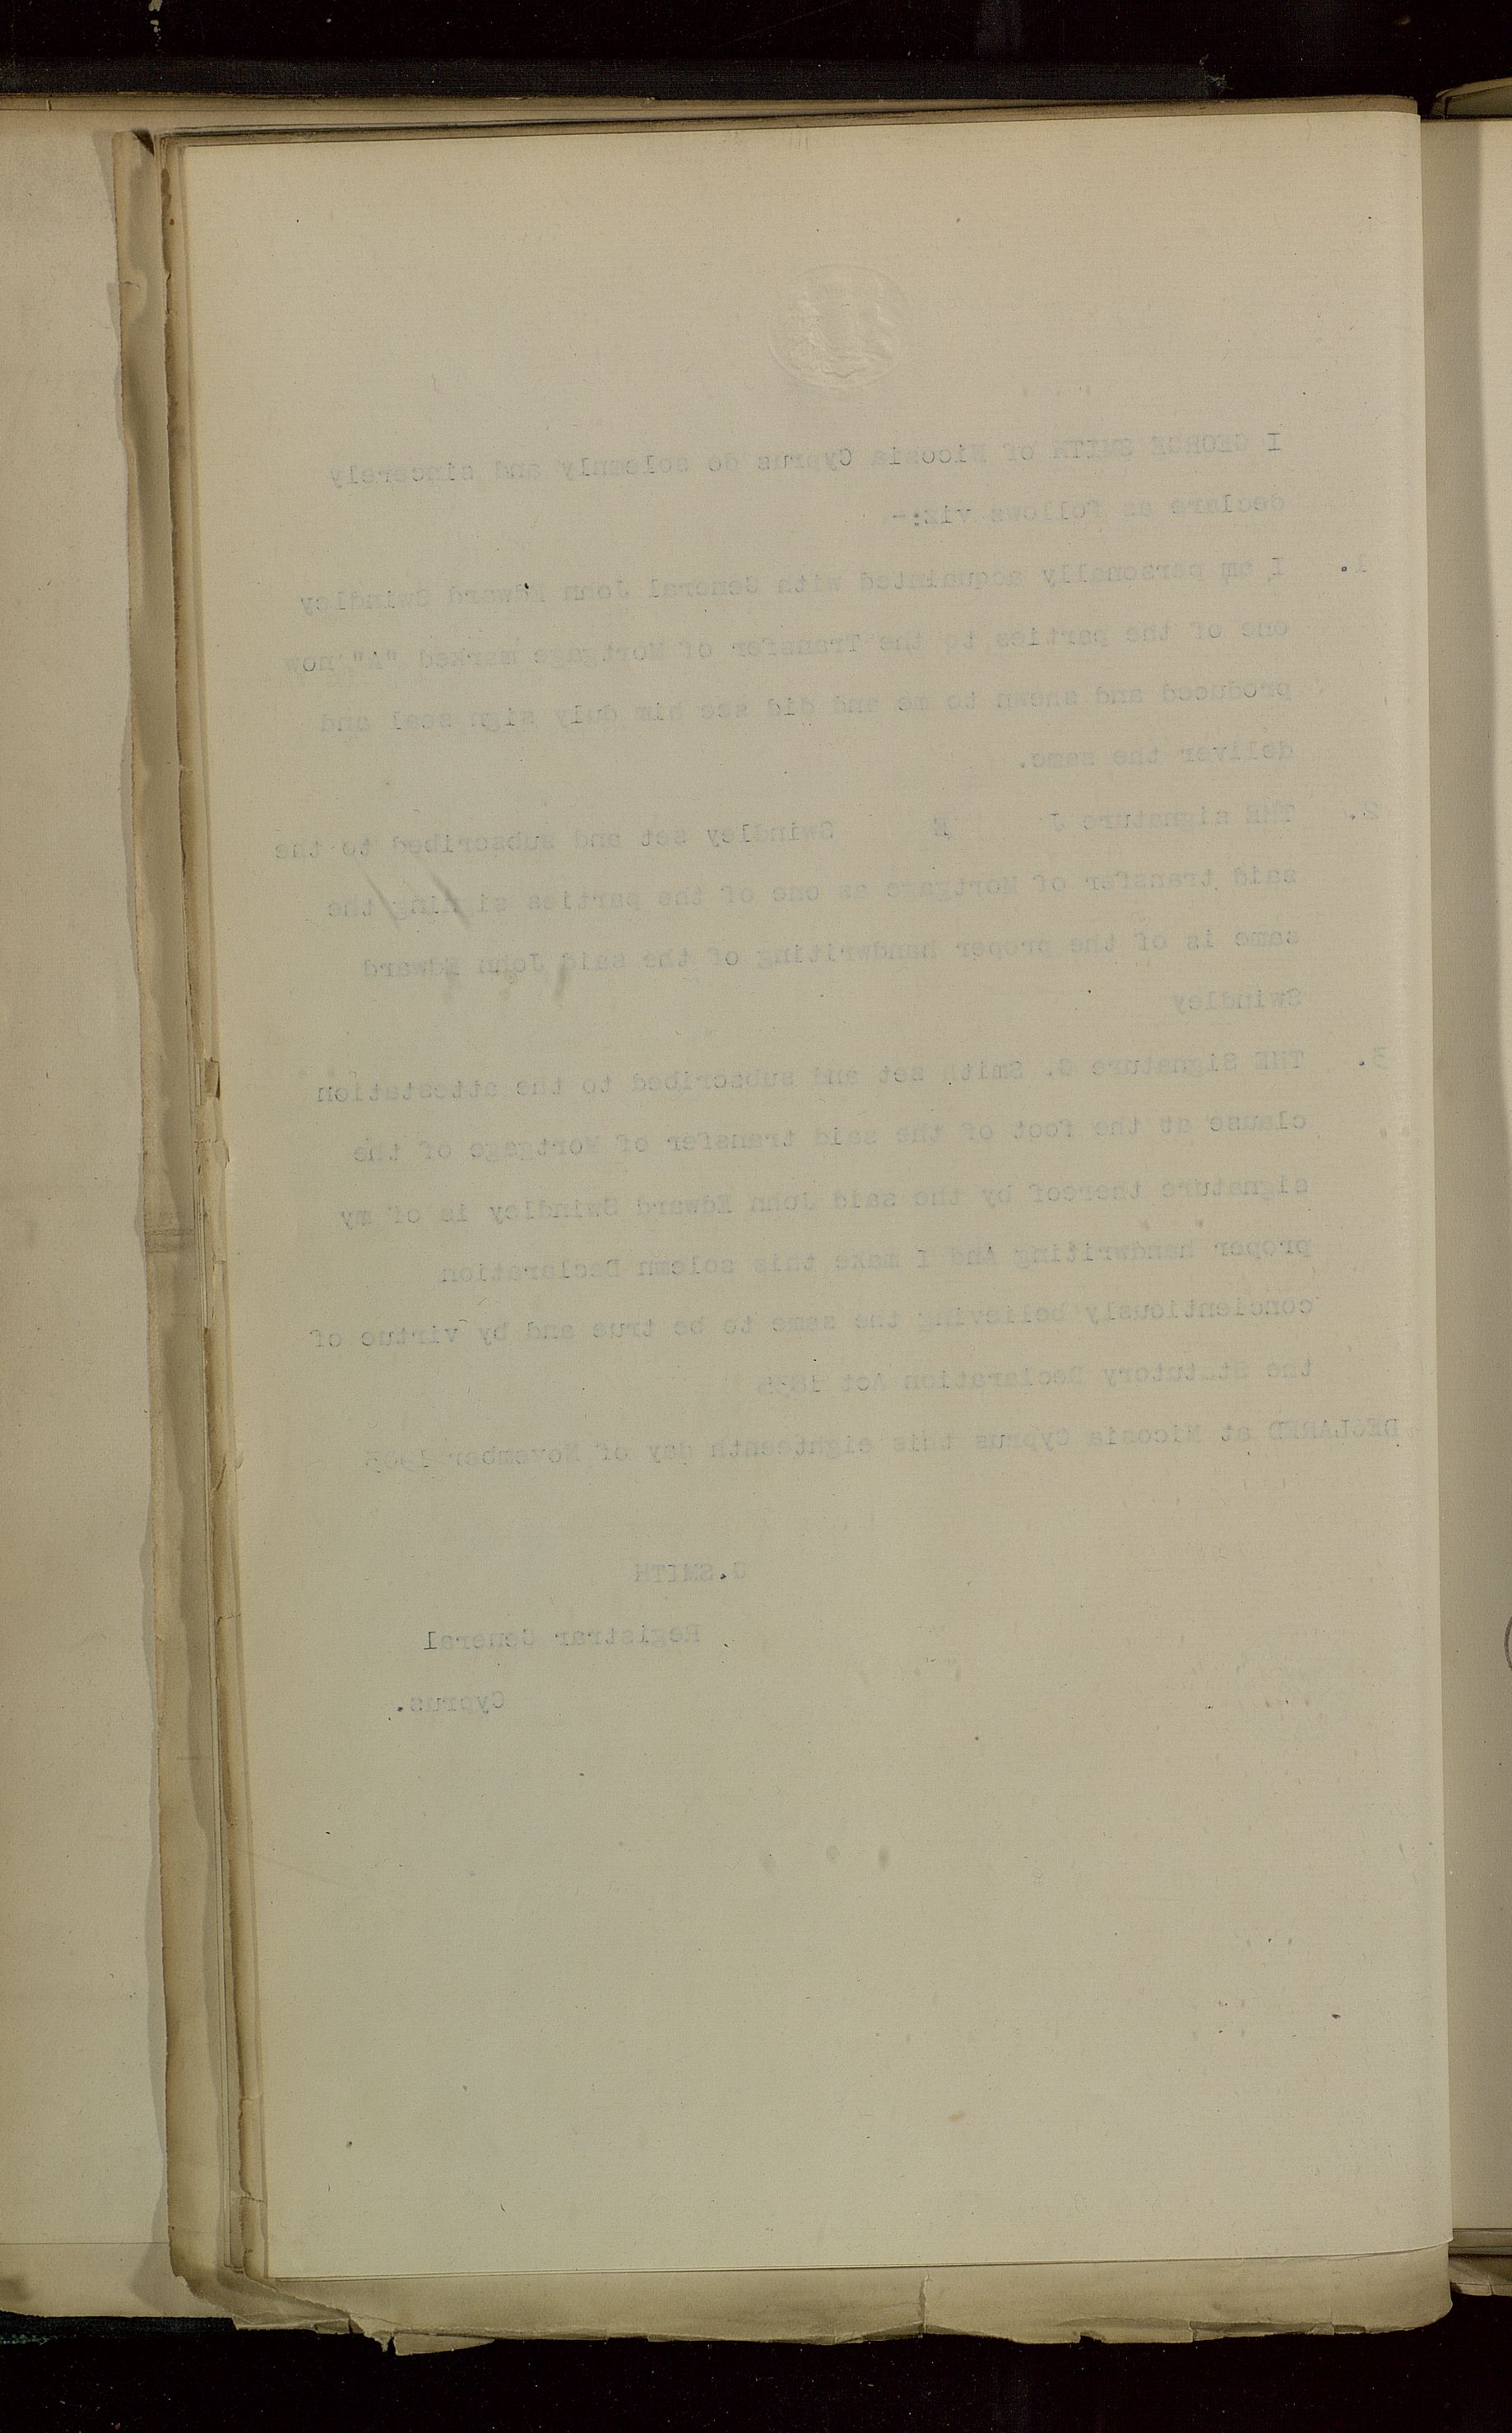 I GEORGE SMITH of Nicosia Cyprus do solemnly and sincerely
declare as follows viz:-
1. I am personally acquainted with General John Edward Swindley
one of the parties to the Transfer of Mortgage marked "A" now
produced and shewn to me and did see him duly sign seal and
deliver the same.
2. THE signature J E Swindley set and subscribed to the
said transfer of Mortgage as one of the parties signing the
same is of the proper handwriting of the said John Edward
Swindley
3. THE Signature G. Smith set and subscribed to the attestation
clause at the foot of the said transfer of Mortgage of the
signature thereof by the said John Edward Swindley is of my
proper handwriting And I make this solemn Declaration
concientiously believing the same to be true and by virtue of
the Statutory Declaration Act 1835
DECLARED at Nicosia Cyprus this eighteenth day of November 1903
G.SMITH
Registrar General
Cyprus.